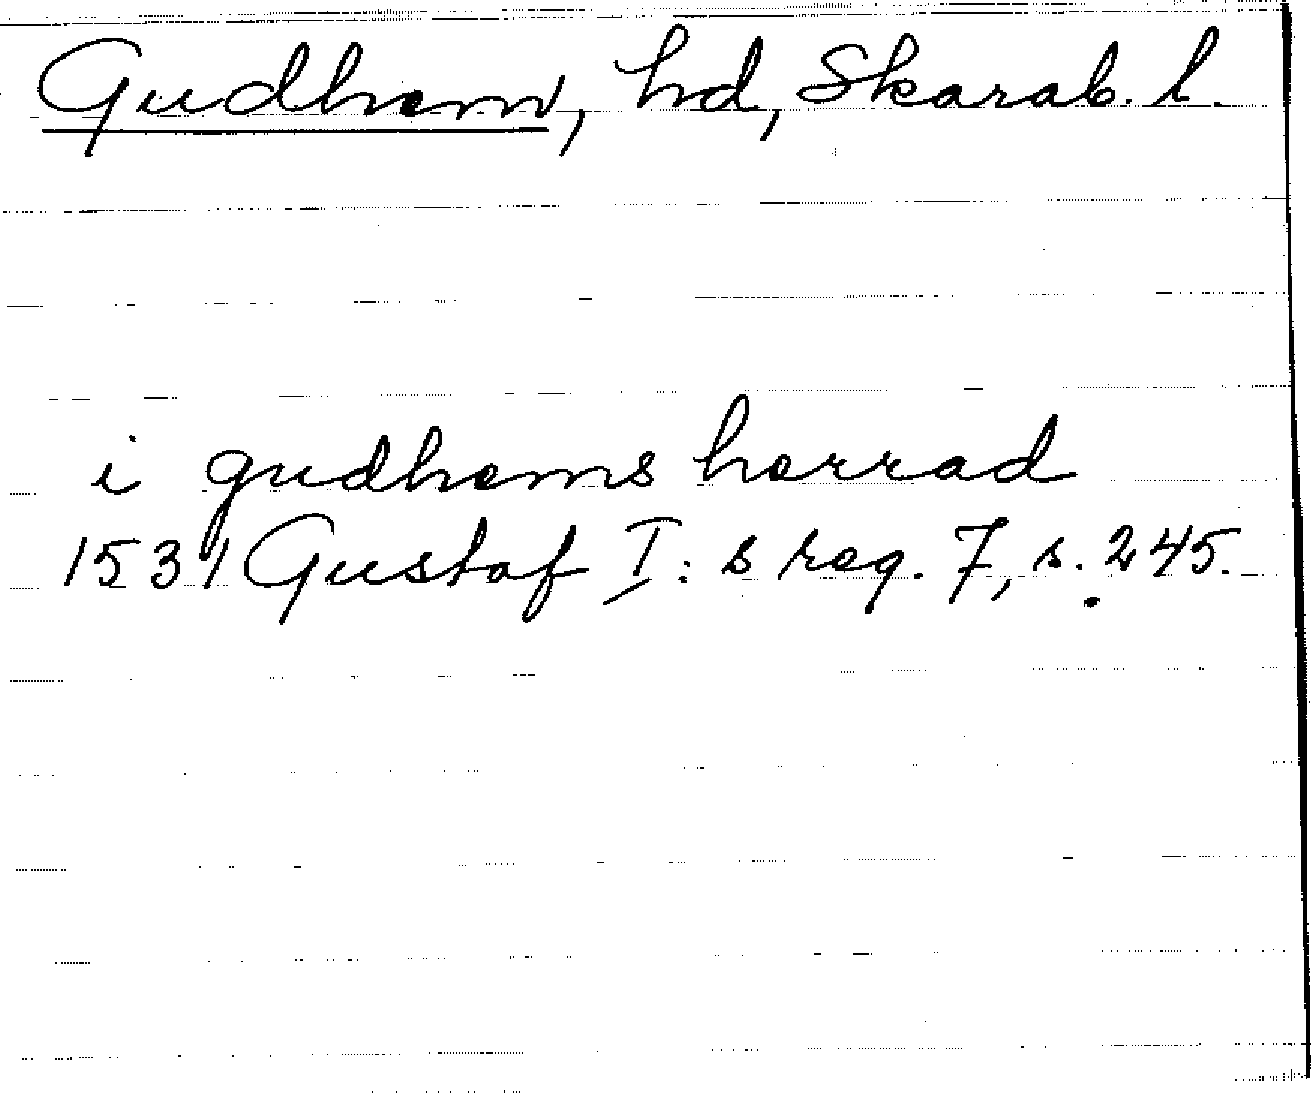 Gudhem, hd, Skarab. l.
i gudhems herrad
1531 Gustaf I:s reg. 7, s. 245.